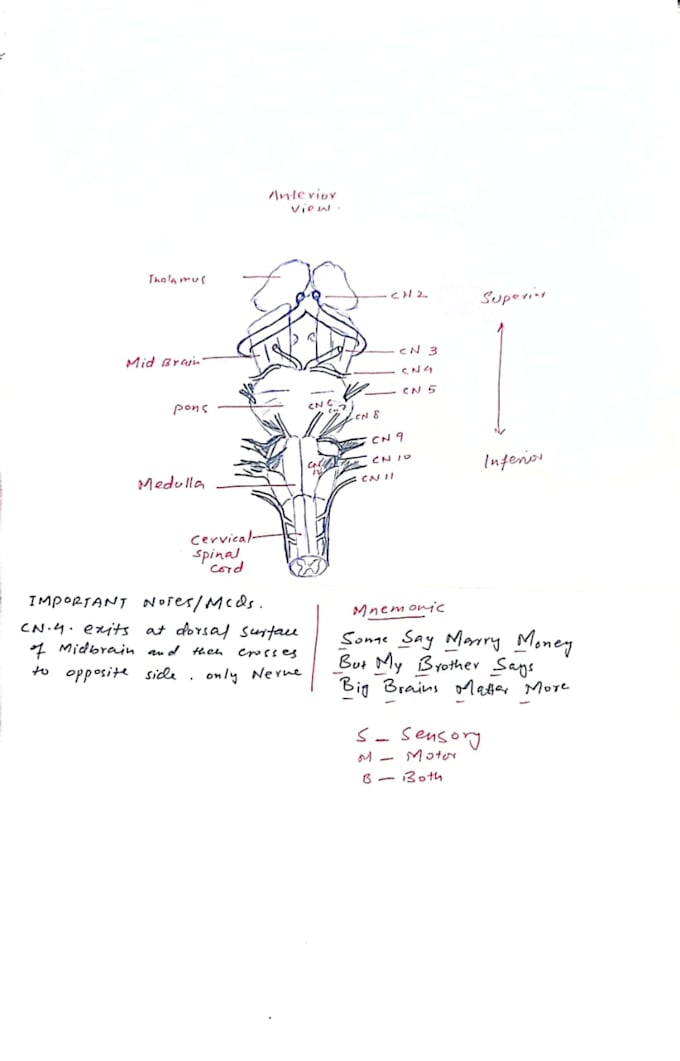 Anterior
View.
Thalamus
CN 2
Superior
Mid Brain
CN 3
CN 4
CN 5
pons
CN 6
CN 7
CN 8
CN 9
CN 10
CN 12
CN 11
Inferior
Medulla
Cervical
Spinal
Cord
IMPORTANT Notes/Mcqs.
CN.4. exits at dorsal surface
of Midbrain and then crosses
to opposite side. only Nerve
Mnemonic
Some Say Marry Money
But My Brother Says
Big Brains Matter More
S - Sensory
M - Motor
B - Both